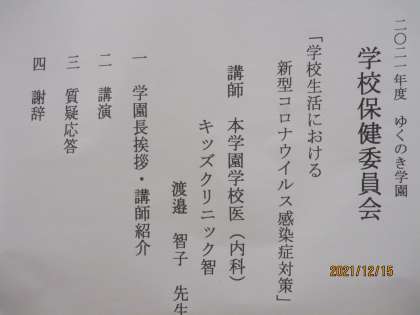 二〇二一年度 ゆくのき学園
学校保健委員会
「学校生活における
新型コロナウイルス感染症対策」
講師 本学園学校医（内科）
キッズクリニック智
渡邉 智子 先生
一 学園長挨拶・講師紹介
二 講演
三 質疑応答
四 謝辞
2021/12/15